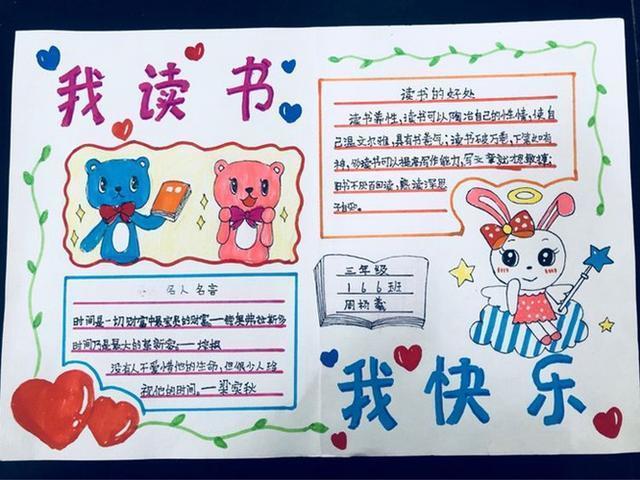 我读书
读书的好处
读书养性,读书可以陶冶自己的性情,使自
己温文尔雅,具有书卷气;读书破万卷,下笔如有
神,多读书可以提高写作能力,写文章就才思敏捷;
旧书不厌百回读,熟读深思
子自知。
名人名言
时间是一切财富中最宝贵的财富——德奥弗拉斯多
时间乃是最大的革新家——培根
没有人不爱惜他的生命,但很少人珍
视他的时间。——梁实秋
三年级
166班
周杨
我快乐